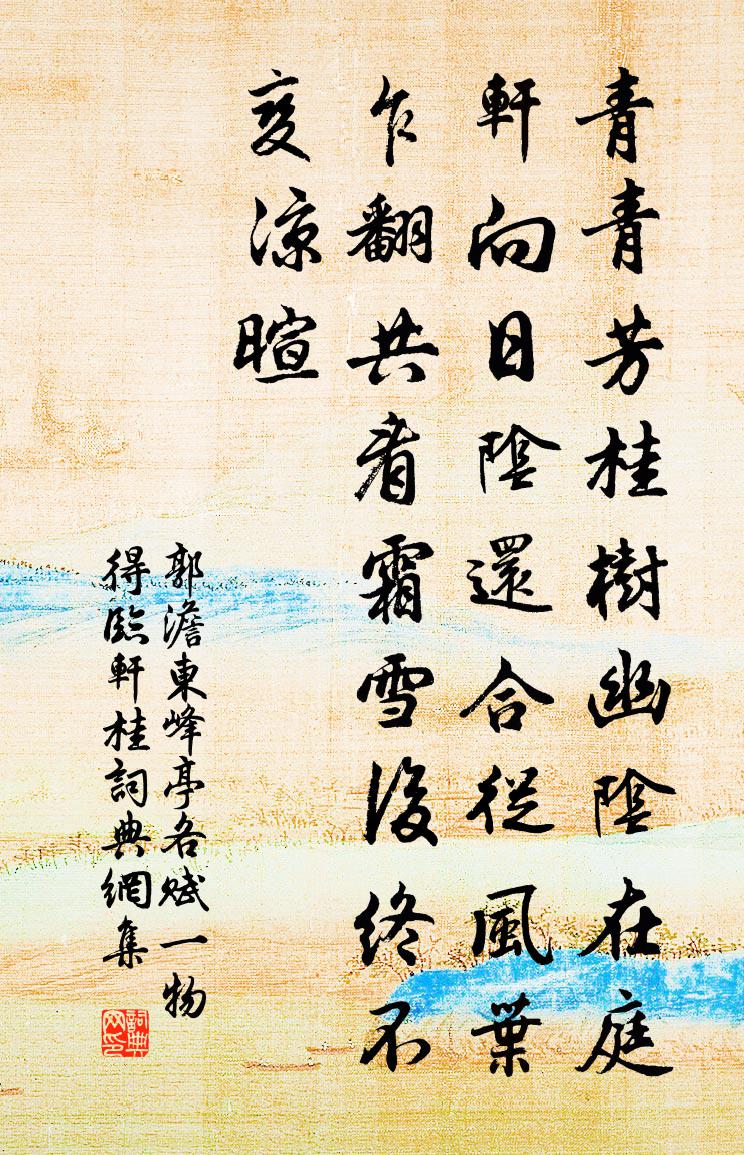 青青芳桂樹幽陰在庭
軒向日陰還合從風葉
乍翻共看霜雪後終不
变凉暄
郭澹東峰亭各賦一物
得臨軒桂詞典網集
詞典网印